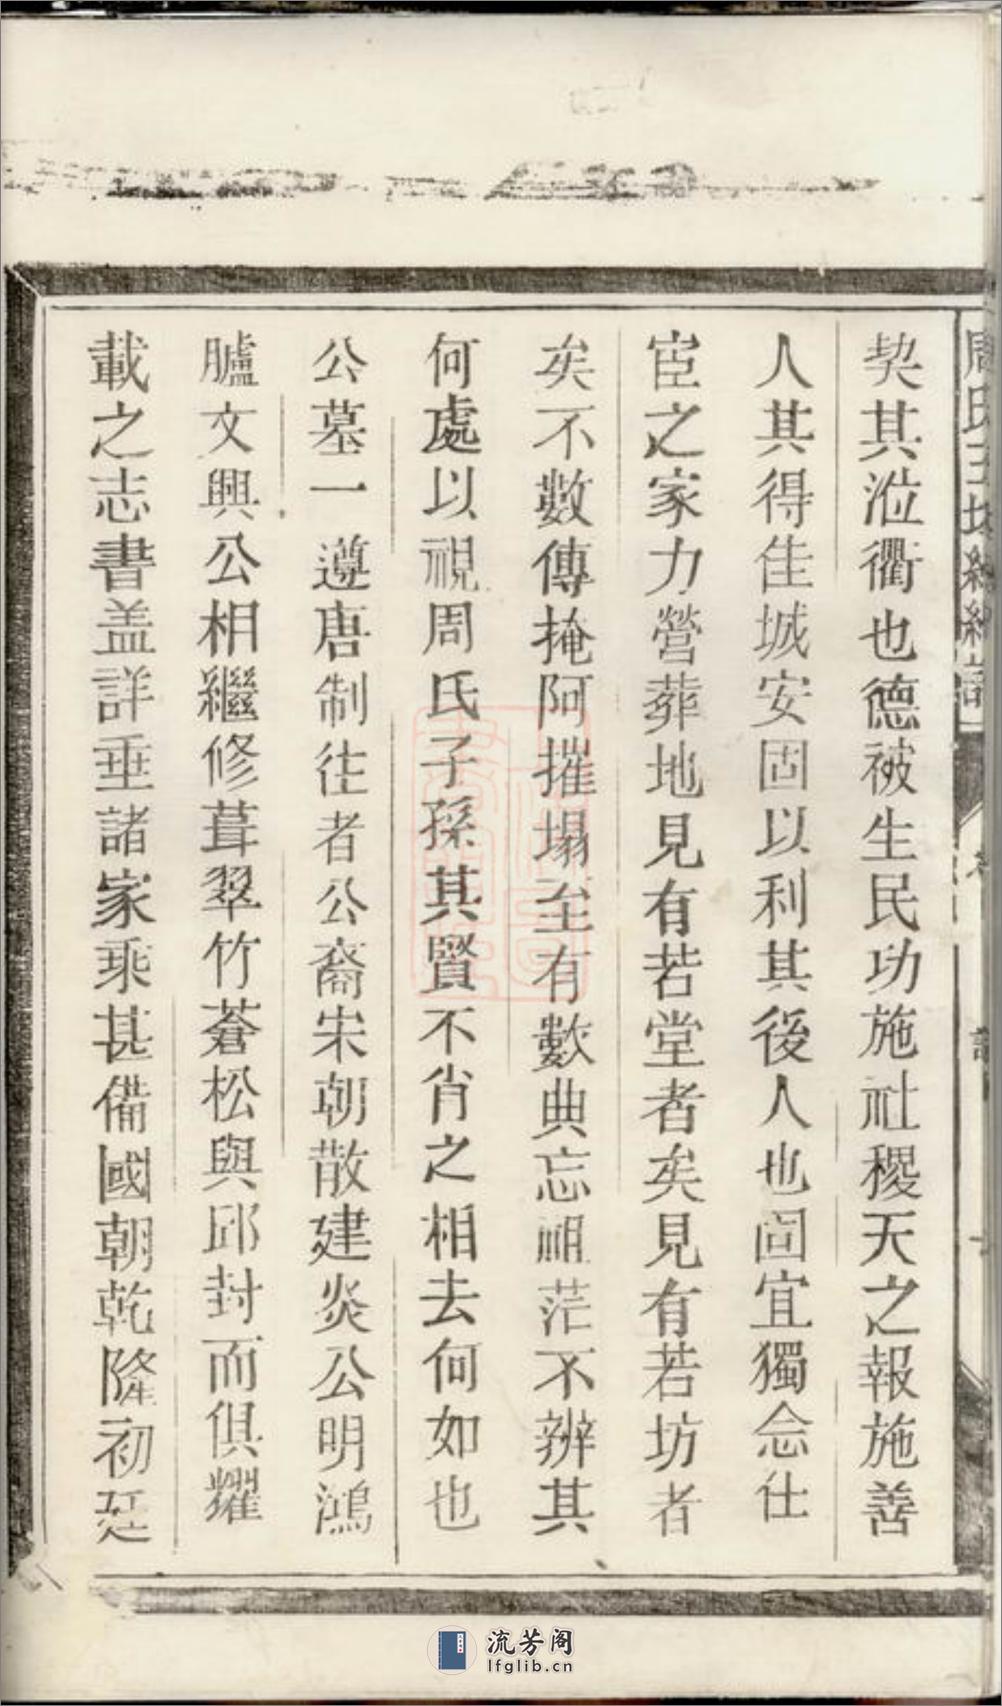 契其涖衢也德被生民功施社稷天之報施善
人其得佳城安固以利其後人也固宜獨念仕
宦之家力營葬地見有若堂者矣見有若坊者
矣不數傳掩阿摧塌至有數典忘祖茫不辨其
何處以視周氏子孫其賢不肖之相去何如也
公墓一遵唐制往者公裔宋朝散建炎公明鴻
臚文興公相繼修葺翠竹蒼松與邱封而俱耀
載之志書盖詳垂諸家乘甚備國朝乾隆初廷
流芳阁
lfglib.cn